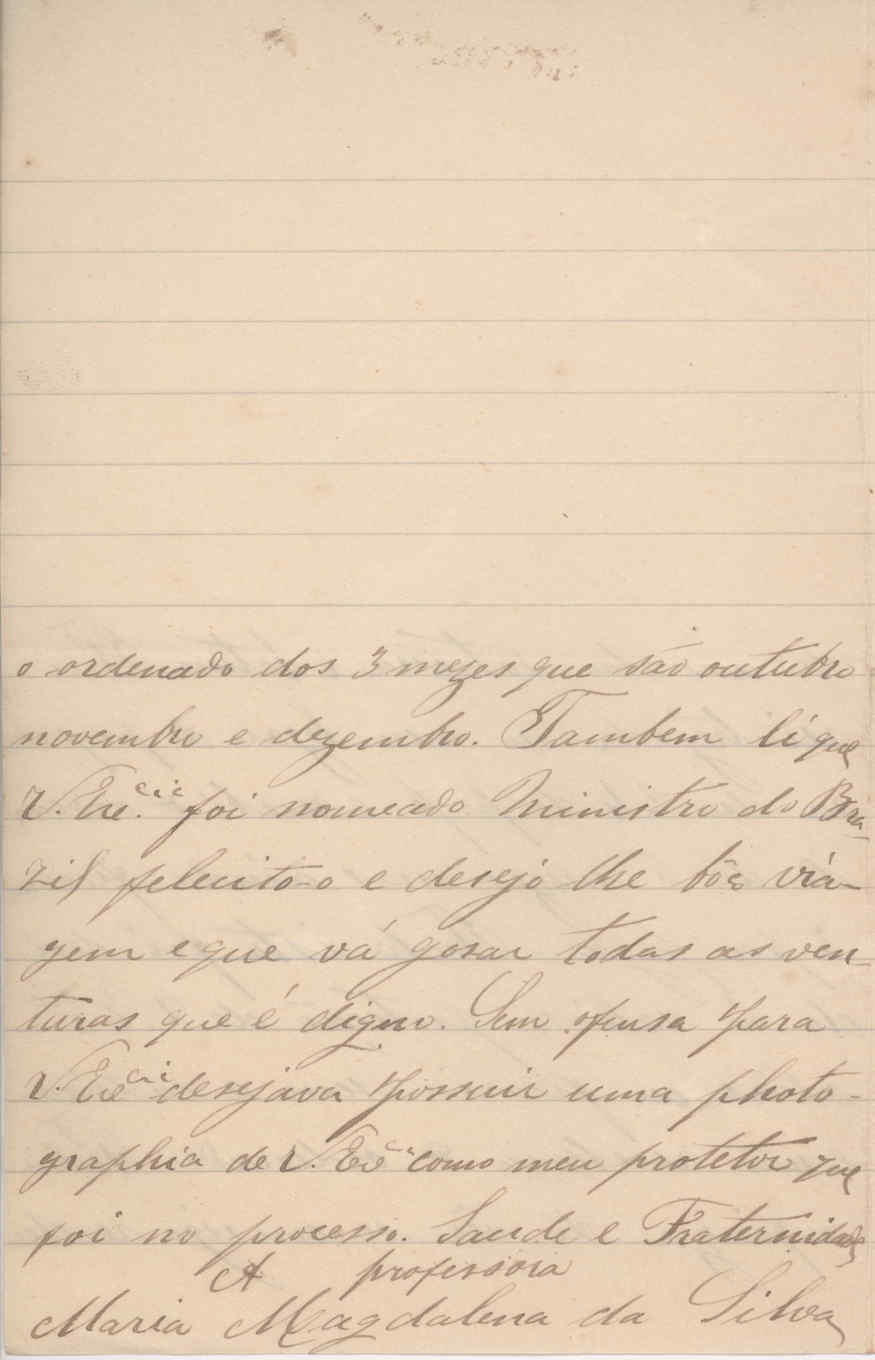 o ordenado dos 3 mezes que são outubro
novembro e dezembro. Tambem lí que
V. Exc.cia foi nomeado Ministro do Bra-
zil felecito-o e desejo lhe bôa via-
gem e que vá gosar todas as ven-
turas que é digno. Sem ofensa para
V. Excia desejava possuir uma photo-
graphia de V. Excia como meu protetor que
foi no processo. Saude e Fraternidade
A professora
Maria Magdalena da Silva